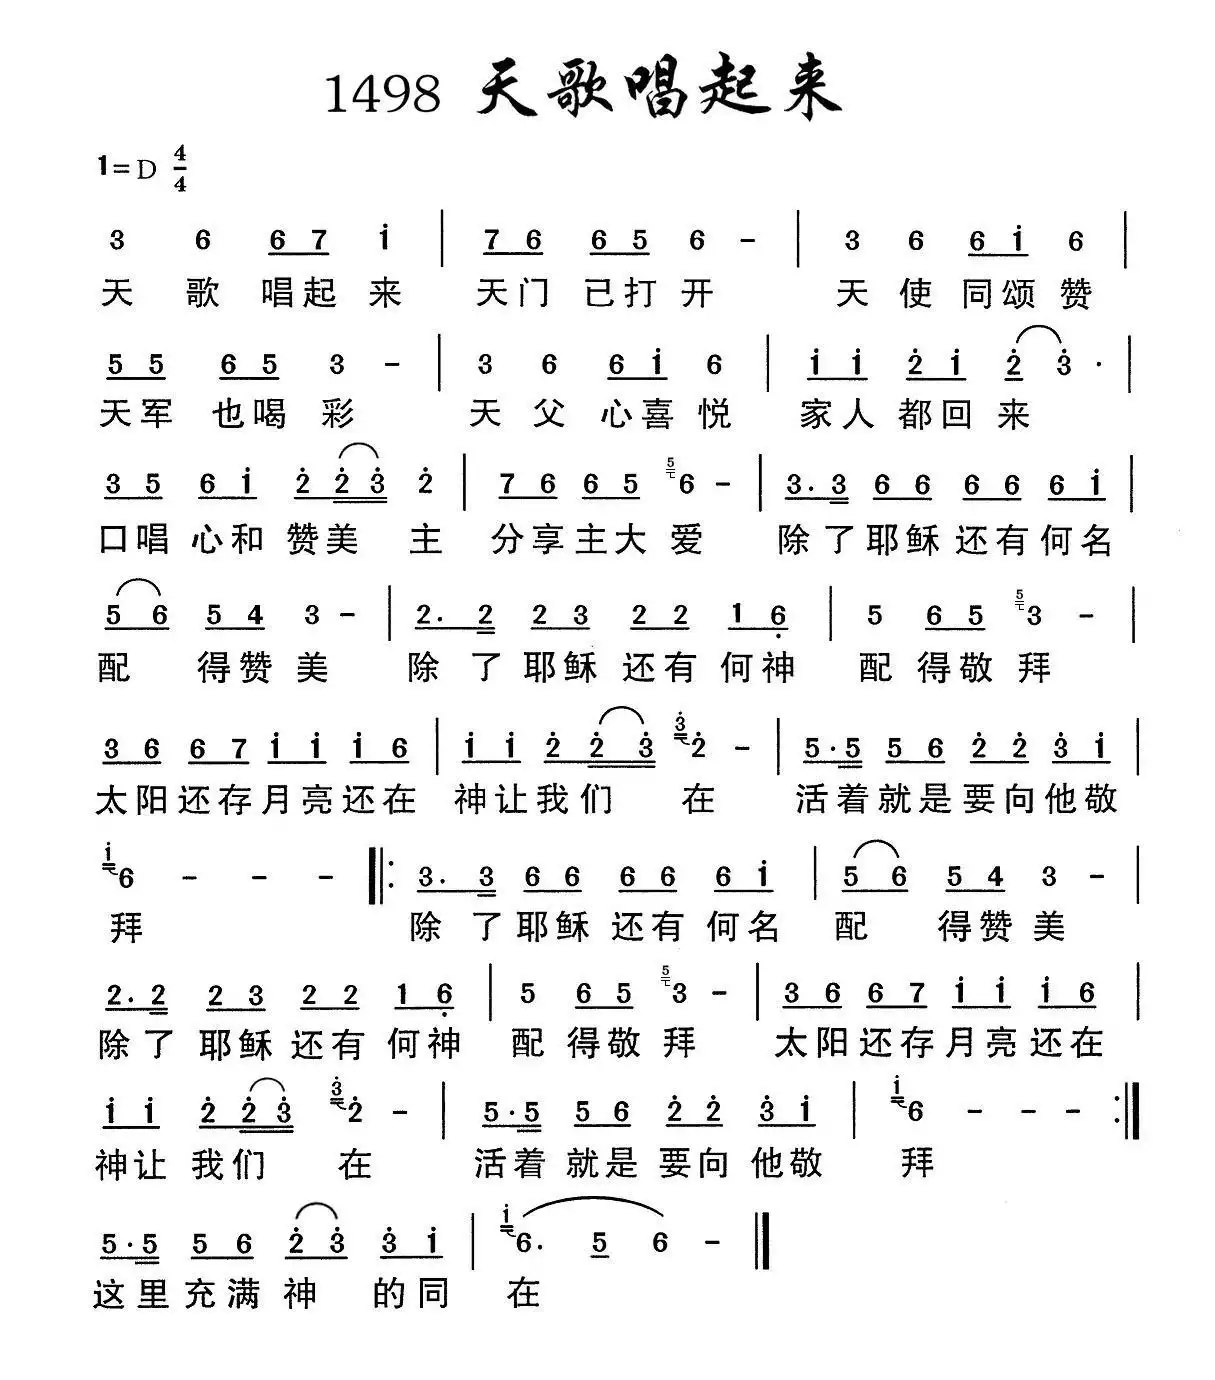 1498 天歌唱起来
1=D 4/4
3 6 6 7 i | 7 6 6 5 6 - | 3 6 6 i 6 |
天 歌 唱起 来 天门 已打 开 天 使 同颂 赞
5 5 6 5 3 - | 3 6 6 i 6 | i i 2̇ i 2̇ 3̇ · |
天军 也喝 彩 天 父 心喜 悦 家人 都回 来
3 5 6 i 2̇ 2̇ 3̇ 2̇ | 7 6 6 5 5 6 - | 3. 3 6 6 6 6 6 i |
口唱 心和 赞美 主 分享 主大 爱 除了 耶稣 还有 何名
5 6 5 4 3 - | 2. 2 2 3 2 2 1 6̣ | 5 6 5 5 3 - |
配 得赞 美 除 了 耶稣 还有 何神 配 得敬 拜
3 6 6 7 i i i 6 | i i 2̇ 2̇ 3̇ 3̇ 2̇ - | 5·5 5 6 2̇ 2̇ 3̇ i |
太阳 还存 月亮 还在 神让 我们 在 活着 就是 要向 他敬
i 6 - - - ‖: 3. 3 6 6 6 6 6 i | 5 6 5 4 3 - |
拜 除 了 耶稣 还有 何名 配 得赞 美
2. 2 2 3 2 2 1 6̣ | 5 6 5 5 3 - | 3 6 6 7 i i i 6 |
除了 耶稣 还有 何神 配 得敬 拜 太阳 还存 月亮 还在
i i 2̇ 2̇ 3̇ 3̇ 2̇ - | 5·5 5 6 2̇ 2̇ 3̇ i | i 6 - - - :‖
神让 我们 在 活着 就是 要向 他敬 拜
5·5 5 6 2̇ 3̇ 3̇ i | i 6. 5 6 - ‖
这里 充满 神 的同 在